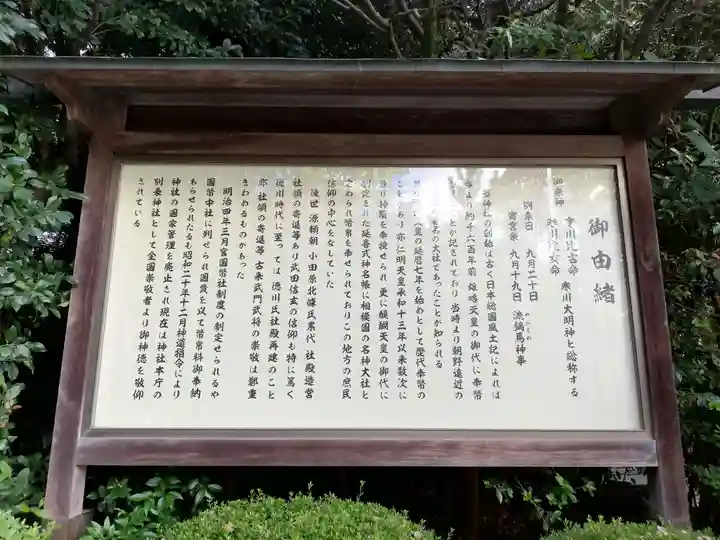 御由緒
御祭神 寒川比古命 寒川大明神と総称する
寒川比女命
例祭日 九月二十日
宵宮祭 九月十九日 流鏑馬神事
やぶさめ
当神社の創始は古く日本総国風土記によれば
今より約千六百年前 雄略天皇の御代に奉幣
ことが記されており 当時より朝野遠近の
名の大社であったことが知られる
天皇の延暦七年を始めとして歴代奉幣の
ことあり 亦仁明天皇承和十三年以来数次に
亘り神階を奉授せられ 更に醍醐天皇の御代に
制定された延喜式神名帳に相模国の名神大社と
定められ幣帛を奉せられておりこの地方の庶民
信仰の中心をなしていた
後世 源頼朝 小田原北條氏累代 社殿造営
社領の寄進等あり武田信玄の信仰も特に篤く
徳川時代に至っては 徳川氏社殿再建のこと
亦 社領の寄進等 古来武門武将の崇敬は鄭重
きわめるものがあった
明治四年三月官国幣社制度の制定せられるや
国幣中社に列せられ国費を以て幣帛料御奉納
あらせられたるも昭和二十年十二月神道指令により
神社の国家管理を廃止され現在は神社本庁の
別表神社として全国崇敬者より御神徳を敬仰
されている